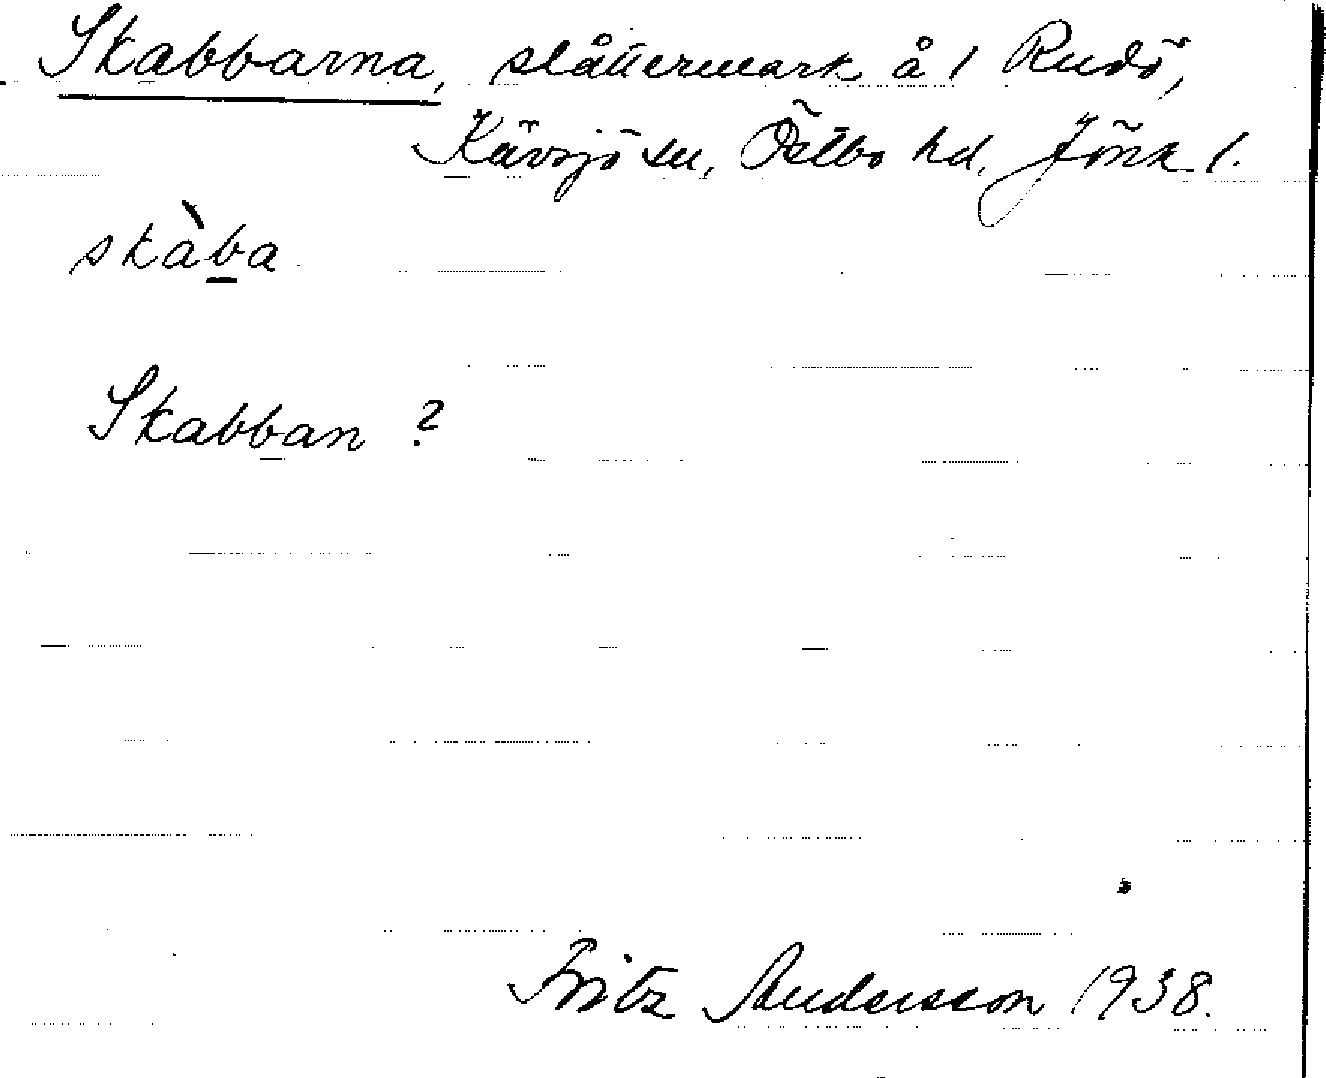 Skabbarna, slåttermark å 1 Rudö,
Kävsjö sn, Östbo hd, Jönk l.
skàba
Skabban ?
Fritz Andersson 1938.